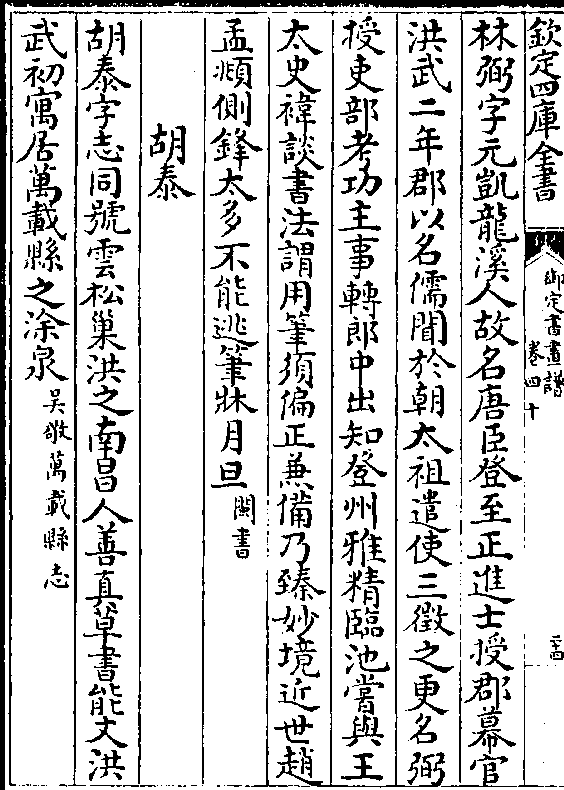 欽定四庫全書
御定書畫譜
卷四十
二十四
林弼字元凱龍溪人故名唐臣登至正進士授郡幕官
洪武二年郡以名儒聞於朝太祖遣使三徵之更名弼
授吏部考功主事轉郎中出知登州雅精臨池嘗與王
太史褘談書法謂用筆須偏正兼備乃臻妙境近世趙
孟頫側鋒太多不能逃筆牀月旦閩書
胡泰
胡泰字志同號雲松巢洪之南昌人善真草書能文洪
武初寓居萬載縣之涂泉吳敬萬載縣志